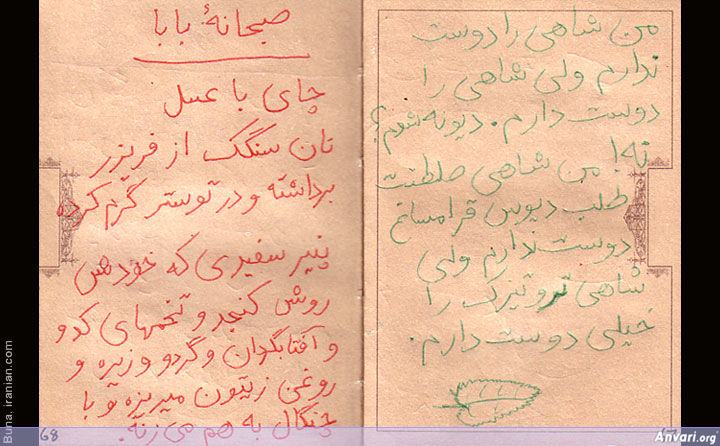 من شاهی را دوست
ندارم ولی شاهی را
دوست دارم. دیونه شدم؟
نه! من شاهی صلطنت
طلب دیوس قرامساخ
دوست ندارم ولی
شاهی تروتیزک را
خیلی دوست دارم.
صبحانهٔ بابا
چای با عسل
نان سنگک از فریزر
برداشته و در توستر گرم کرده
پنیر سفیدی که خودش
روش کنجد و تخمهای کدو
و آفتابگردان و گردو و زیره و
روغن زیتون میریزه و با
چنگال به هم می‌زنه.
68
Buna, iranian.com
Anvari.org